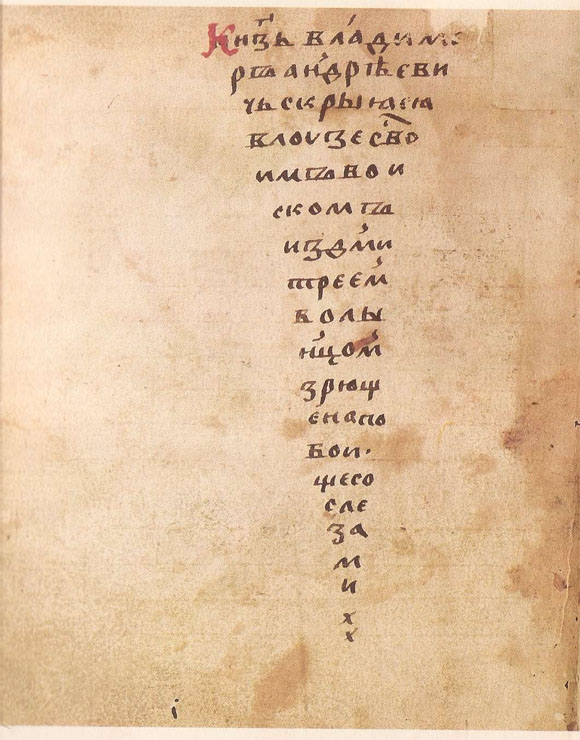 Кн҃зь владиме
ръ андрѣеви
чь скрыꙗсꙗ
в лоузе сво
имъ вои
скомъ
и здми
треем
волы
нцом
зрющ
е на по
бои·
ще со
сле
за
м
и
х
х
і